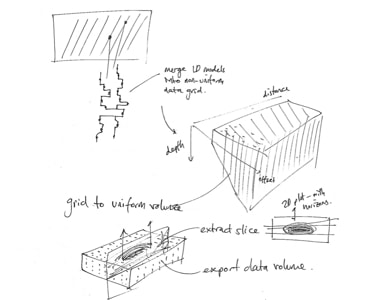 merge 1D models
into non-uniform
data grid.
distance
depth
offset
grid to uniform volume
2D plot - with
horizons.
extract slice
export data volume.